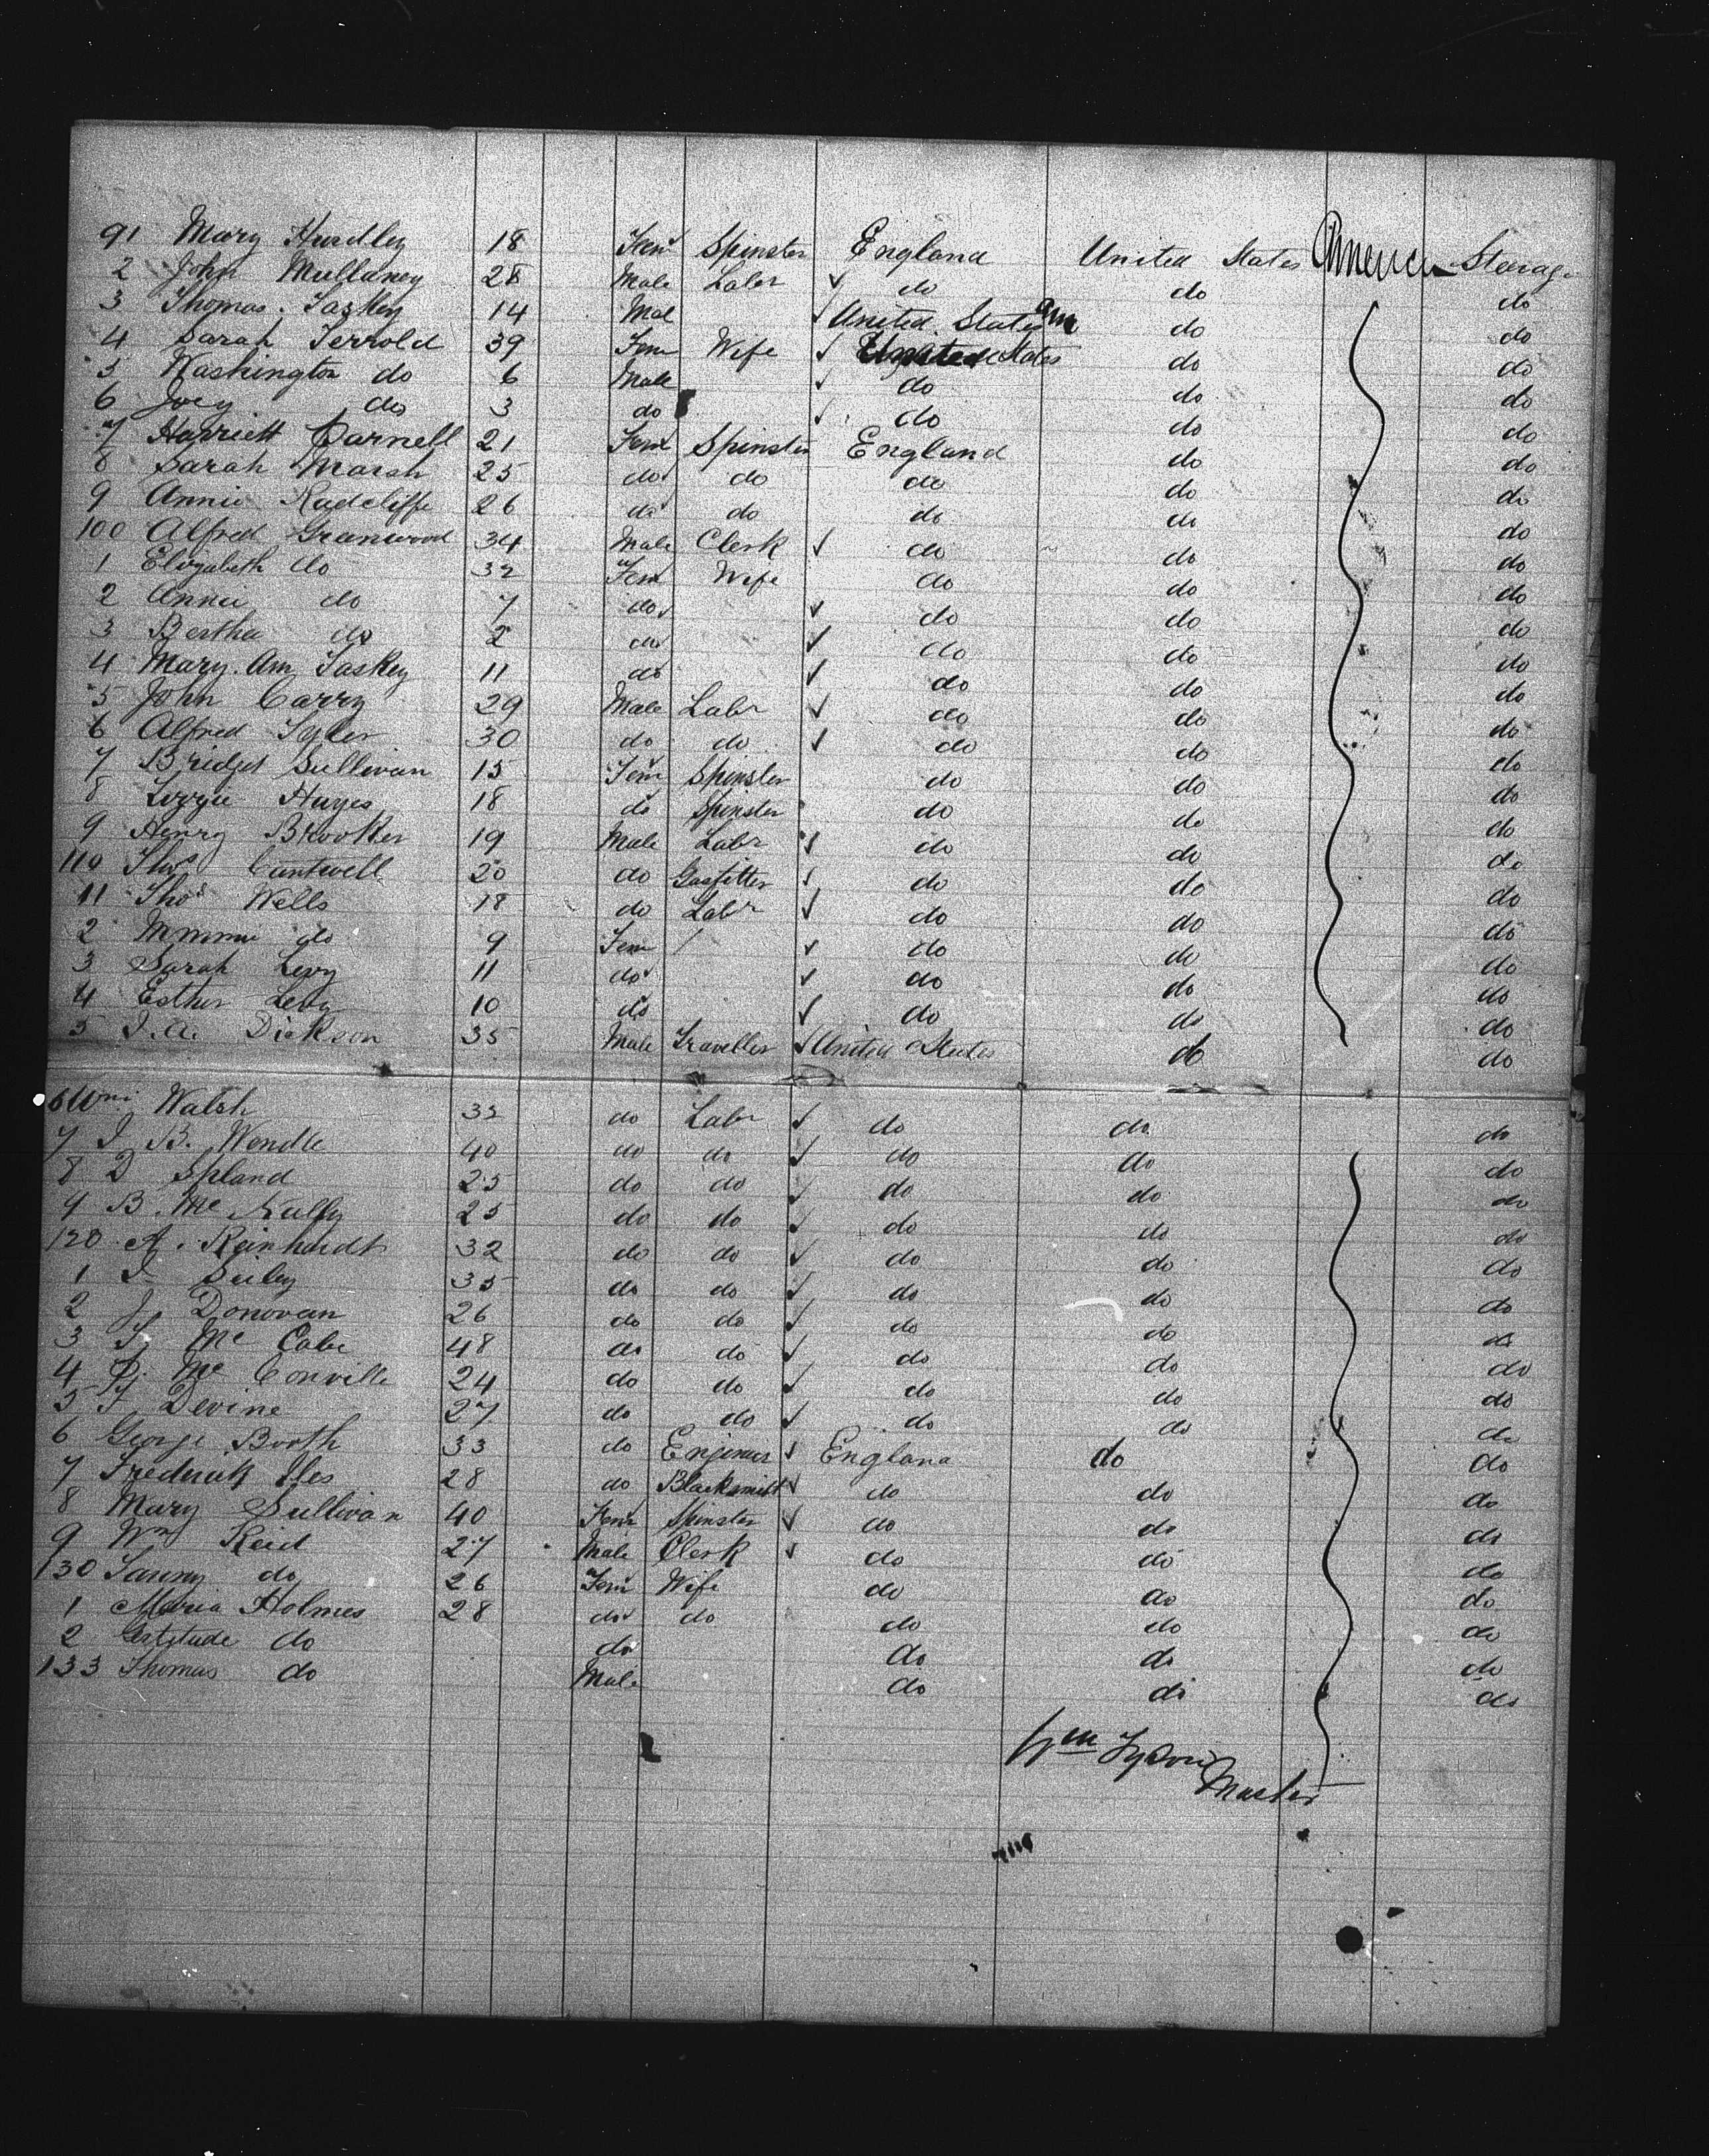 91 Mary Hurdley 18 Fem Spinster England United States America Steerage
2 John Mullaney 28 Male Labr do do do
3 Thomas Taskey 14 Mal United States Am do do
4 Sarah Jerrold 39 Fem Wife United States do do
5 Washington do 6 Male do do do
6 Joey do 3 do do do do
7 Harriett Carnell 21 Fem Spinster England do do
8 Sarah Marsh 25 do do do do do
9 Annie Radcliffe 26 do do do do do
100 Alfred Greenwood 34 Male Clerk do do do
1 Elizabeth do 32 Fem Wife do do do
2 Annie do 7 do do do do
3 Bertha do 2 do do do do
4 Mary Ann Taskey 11 do do do do
5 John Carry 29 Male Labr do do do
6 Alfred Tyler 30 do do do do do
7 Bridget Sullivan 15 Fem Spinster do do do
8 Lizzie Hayes 18 do Spinster do do do
9 Henry Brooker 19 Male Labr do do do
110 Thos Cantwell 20 do Gasfitter do do do
11 Thos Wells 18 do Labr do do do
2 do 9 Fem do do do
3 Sarah Levy 11 do do do do
4 Esther Levy 10 do do do do
5 J.A. Dickson 35 Male Traveller United States do do
6 Wm Walsh 32 do Labr do do do
7 J B. Wendle 40 do do do do do
8 D Spland 25 do do do do do
9 B. Mc Nully 25 do do do do do
120 A. Reinhardt 32 do do do do do
1 J 35 do do do do do
2 J. Donovan 26 do do do do do
3 T. Mc Cabe 48 do do do do do
4 Mc Conville 24 do do do do do
5 T. Devine 27 do do do do do
6 George Booth 33 do Engineer England do do
7 Frederick Iles 28 do Blacksmith do do do
8 Mary Sullivan 40 Fem Spinster do do do
9 Wm Reid 27 Male Clerk do do do
130 Fanny do 26 Fem Wife do do do
1 Maria Holmes 28 do do do do do
2 Gertrude do do do do do
133 Thomas do Male do do do
Wm
Master